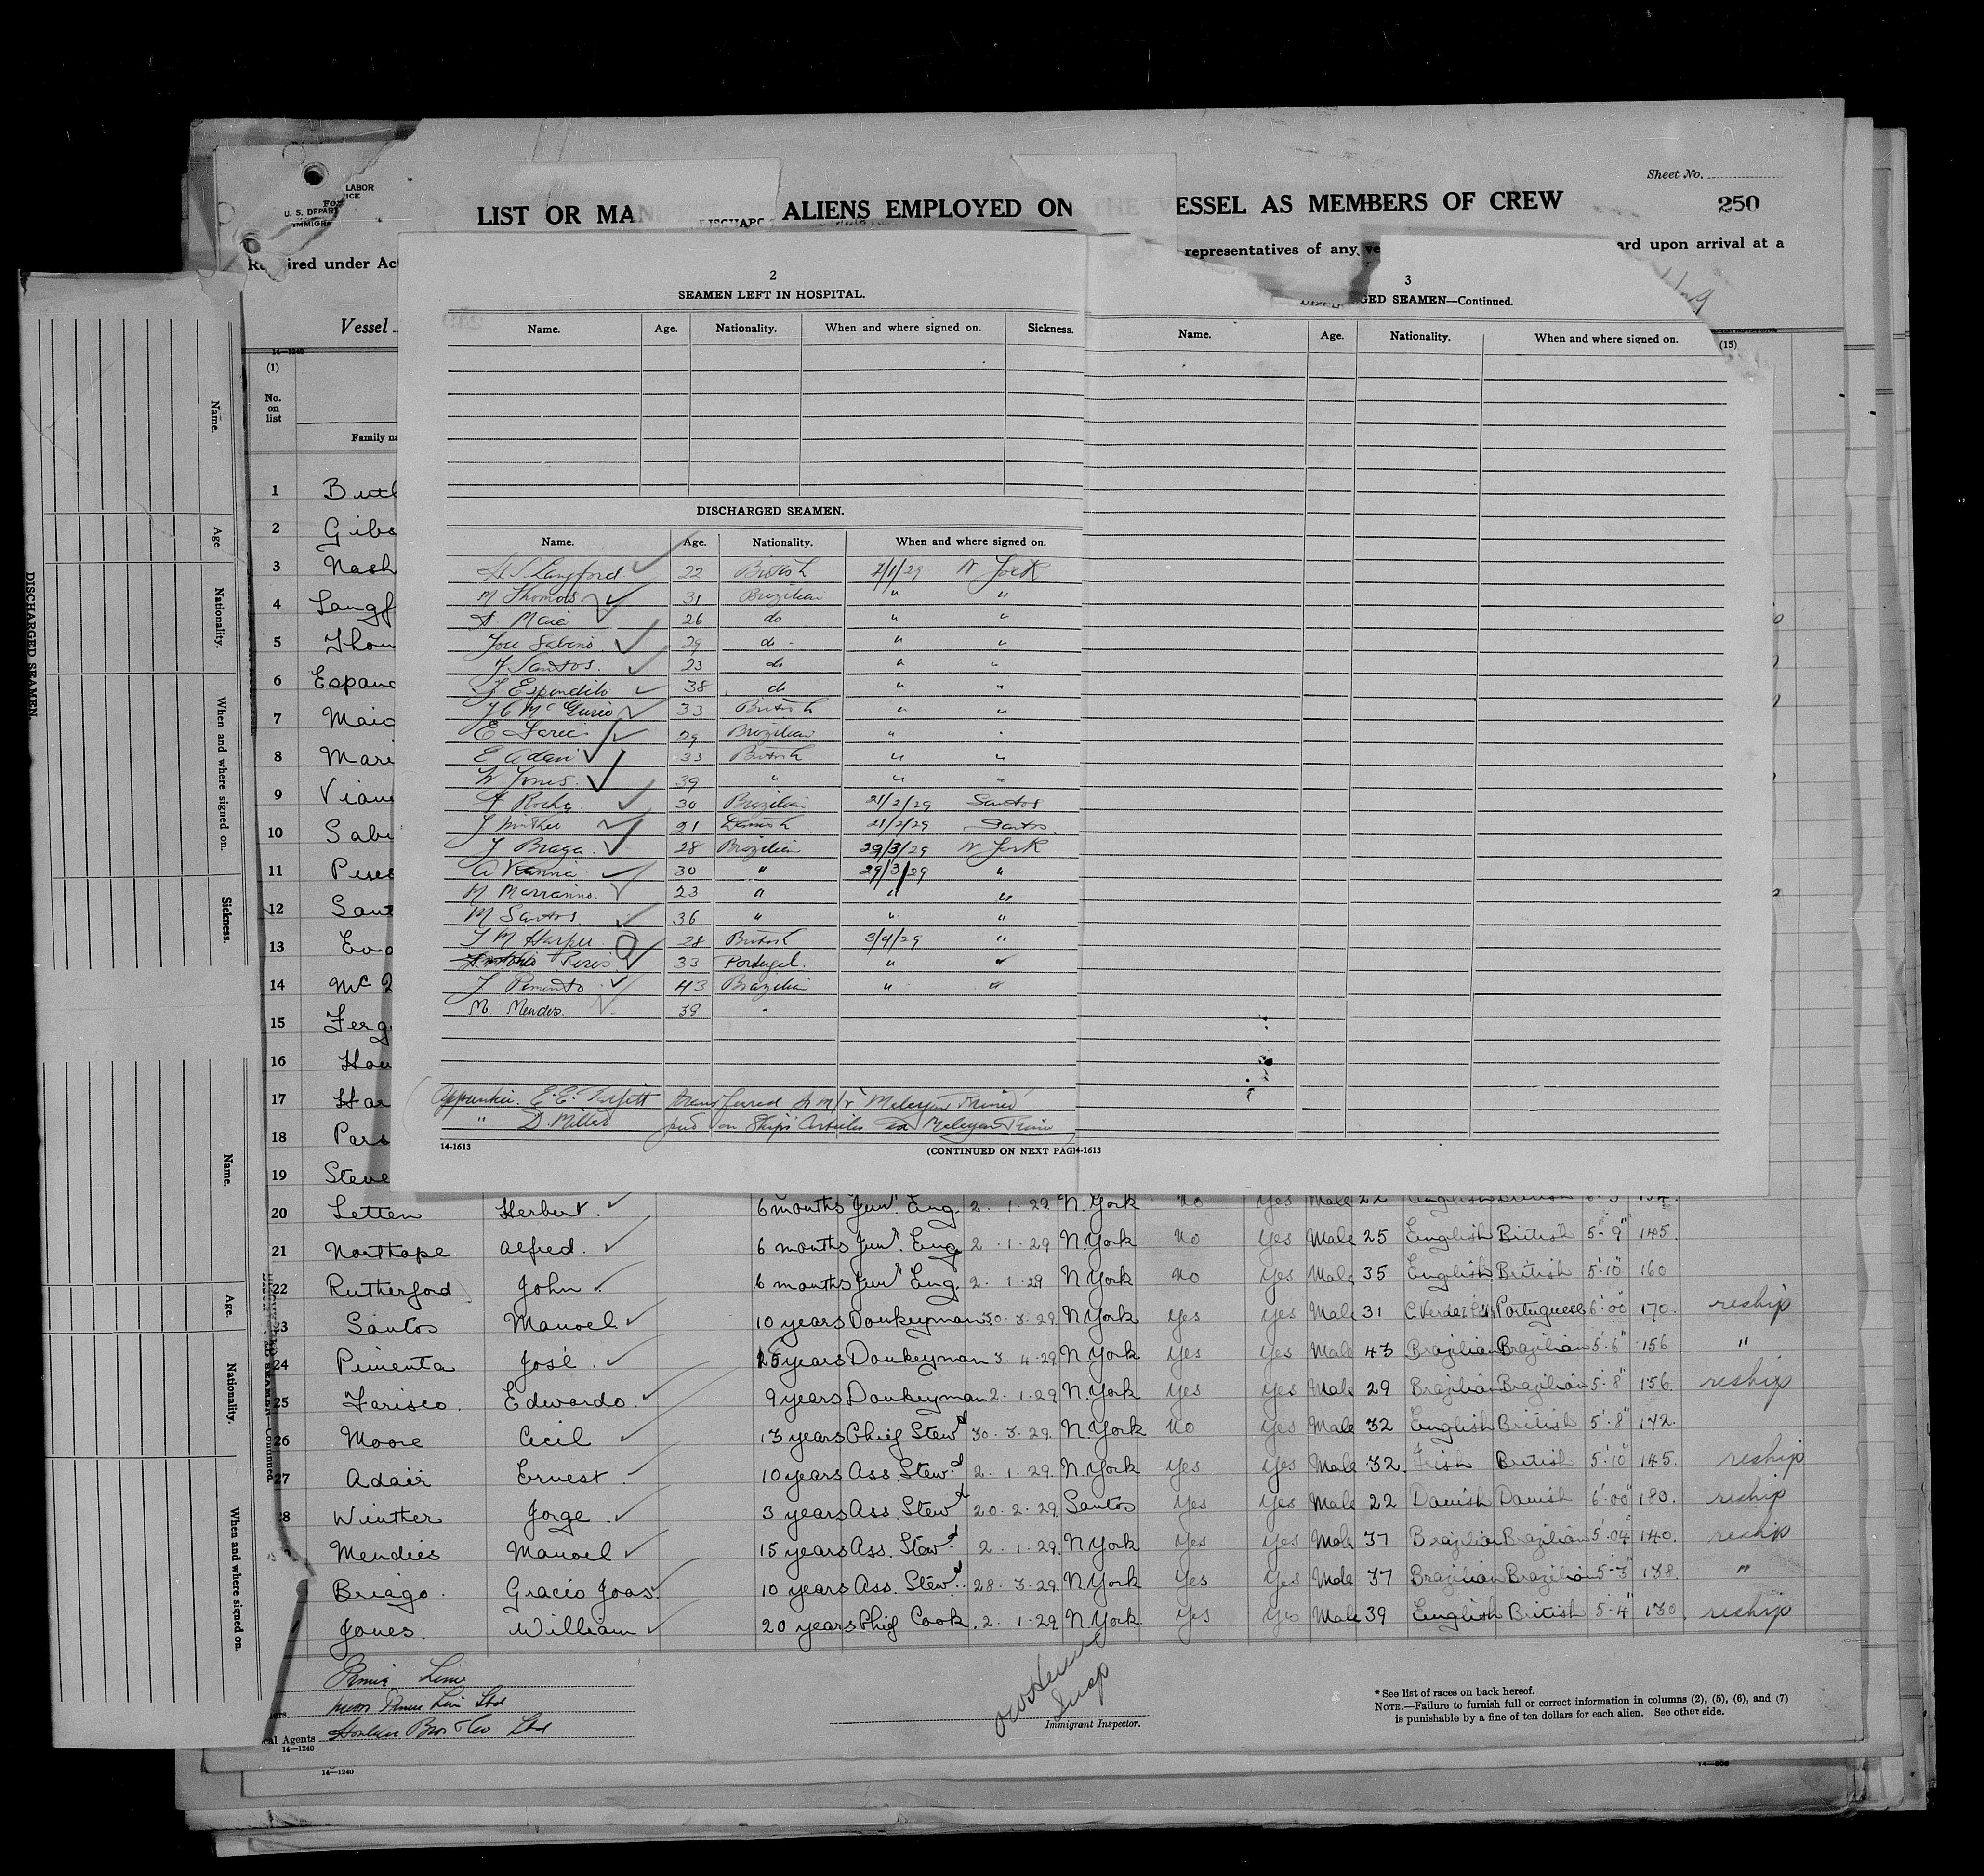 Sheet No.
LABOR
U. S. DEPART
IMMIGRA
LIST OR MA ALIENS EMPLOYED ON THE VESSEL AS MEMBERS OF CREW
250
Required under Act
representatives of any ve
ard upon arrival at a
Vessel
14—1240
(1)
No. on list
Family na
(15)
2
SEAMEN LEFT IN HOSPITAL.
Name. Age. Nationality. When and where signed on. Sickness.
DISCHARGED SEAMEN.
Name. Age. Nationality. When and where signed on.
H S Langford 22 British 2/1/29 N York
M Thomas 31 Brazilian " "
A Maia 26 do " "
Jose Sabino 29 do " "
J Santos 23 do " "
J Espindilo 38 do " "
J C Mc 33 British " "
E 29 Brazilian "
E Adair 33 British " "
W Jones 39 " " "
A Rocha 30 Brazilian 21/2/29 Santos
J Winther 21 Danish 21/2/29 Santos
J Braga 28 Brazilian 29/3/29 N York
A 30 " 29/3/29 "
M Marranno 23 " " "
M Santos 36 " " "
J M Harper 28 British 3/4/29 "
Antonio Peris 33 Portugal. " "
J Pimento 43 Brazilian " "
M Mendes 39
E.E. Parfitt transferred
" D. Miller on Ships Articles
14-1613
(CONTINUED ON NEXT PAG
3
DISCHARGED SEAMEN—Continued.
Name. Age. Nationality. When and where signed on.
4-1613
DISCHARGED SEAMEN.
Name. Age Nationality. When and where signed on. Sickness.
Name. Age. Nationality. When and where signed on.
1 Butl
2 Gibs
3 Nash
4 Langf
5 Thom
6 Espand
7 Maio
8 Mari
9 Vian
10 Sabi
11 Peres
12 Sant
13
14 Mc
15 Ferg
16 Hou
17 Har
18 Pars
19 Steve
20 Letten Herbert 6 months Junr. Eng. 2. 1. 29 N. York No Yes Male 22 English British
21 Northope Alfred. 6 months Junr. Eng 2. 1. 29 N. York No Yes Male 25 English British 5' 9" 145.
22 Rutherford John 6 months Junr Eng. 2. 1. 29 N York No Yes Male 35 English British 5' 10" 160
23 Santos Manoel 10 years Donkeyman 30. 3. 29 N York Yes Yes Male 31 C. Verde Portuguese 6' 00" 170. reship
24 Pimenta José. 25 years Donkeyman 3. 4. 29 N. York Yes Yes Male 43 Brazilian Brazilian 5' 6" 156 "
25 Farisco. Edwardo. 9 years Donkeyman 2. 1. 29 N. York Yes Yes Male 29 Brazilian Brazilian 5' 8" 156. reship
26 Moore Cecil 13 years Chief Stewd 30. 3. 29. N. York No Yes Male 32 English British 5' 8" 142.
27 Adair Ernest 10 years Ass. Stewd 2. 1. 29. N. York Yes Yes Male 32. Irish British 5' 10" 145. reship
8 Winther Jorge. 3 years Ass. Stewd 20. 2. 29. Santos Yes Yes Male 22 Danish Danish 6' 00" 180. reship
Mendies Manoel 15 years Ass. Stewd 2. 1. 29. N. York Yes Yes Male 37 Brazilian Brazilian 5' 04" 140. reship
Briago. Gracio Joas. 10 years Ass. Stewd. 28. 3. 29. N. York Yes Yes Male 37 Brazilian Brazilian 5-3" 138. "
Jones. William 20 years Chief Cook. 2. 1. 29 N. York Yes Yes Male 39 English British 5' 4" 130. reship
Prince Line
Prince Line Ltd
cal Agents Bros & Co Ltd
14—1240
Insp
Immigrant Inspector.
* See list of races on back hereof.
NOTE.—Failure to furnish full or correct information in columns (2), (5), (6), and (7)
is punishable by a fine of ten dollars for each alien. See other side.
14—1240